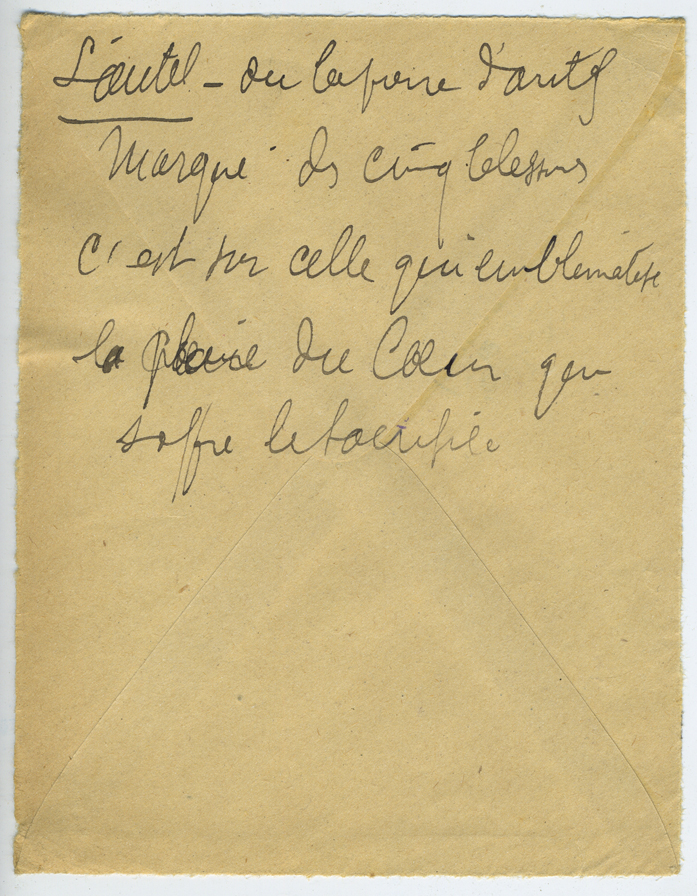 L'autel - ou la pierre d'autel
Marqué des cinq blessures
c'est sur celle qui emblématise
la plaie du Cœur que
s'offre le sacrifice